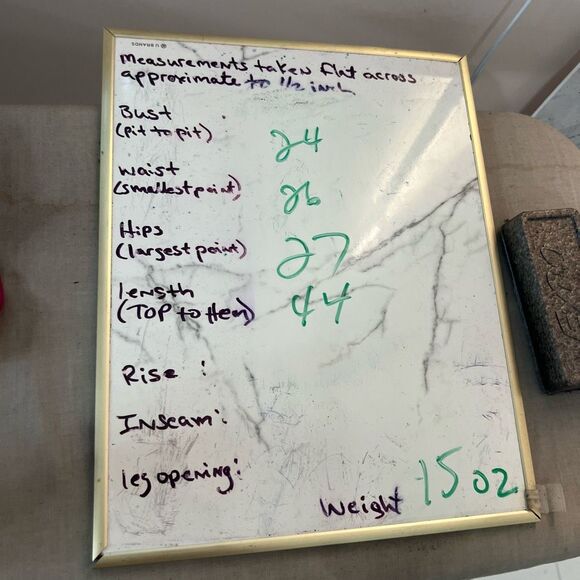 U BRANDS
Measurements taken flat across
approximate to 1/2 inch
Bust
(pit to pit) 24
waist
(smallest point) 26
Hips
(largest point) 27
length
(TOP to Hem) 44
Rise :
Inseam:
leg opening:
Weight 15 oz